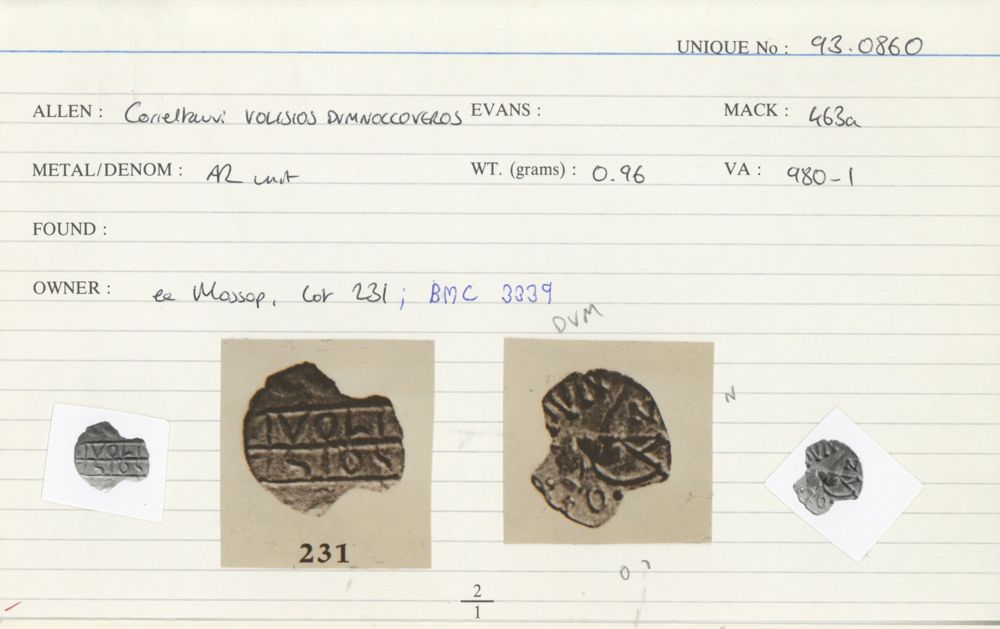 UNIQUE No : 93.0860
ALLEN : Corieltauvi VOLISIOS DVMNOCOVEROS EVANS : MACK : 463a
METAL/DENOM : AR unit WT. (grams) : 0.96 VA : 980-1
FOUND :
OWNER : ex Mossop, Lot 231 ; BMC 3339
DVM
N
231
O
2
1